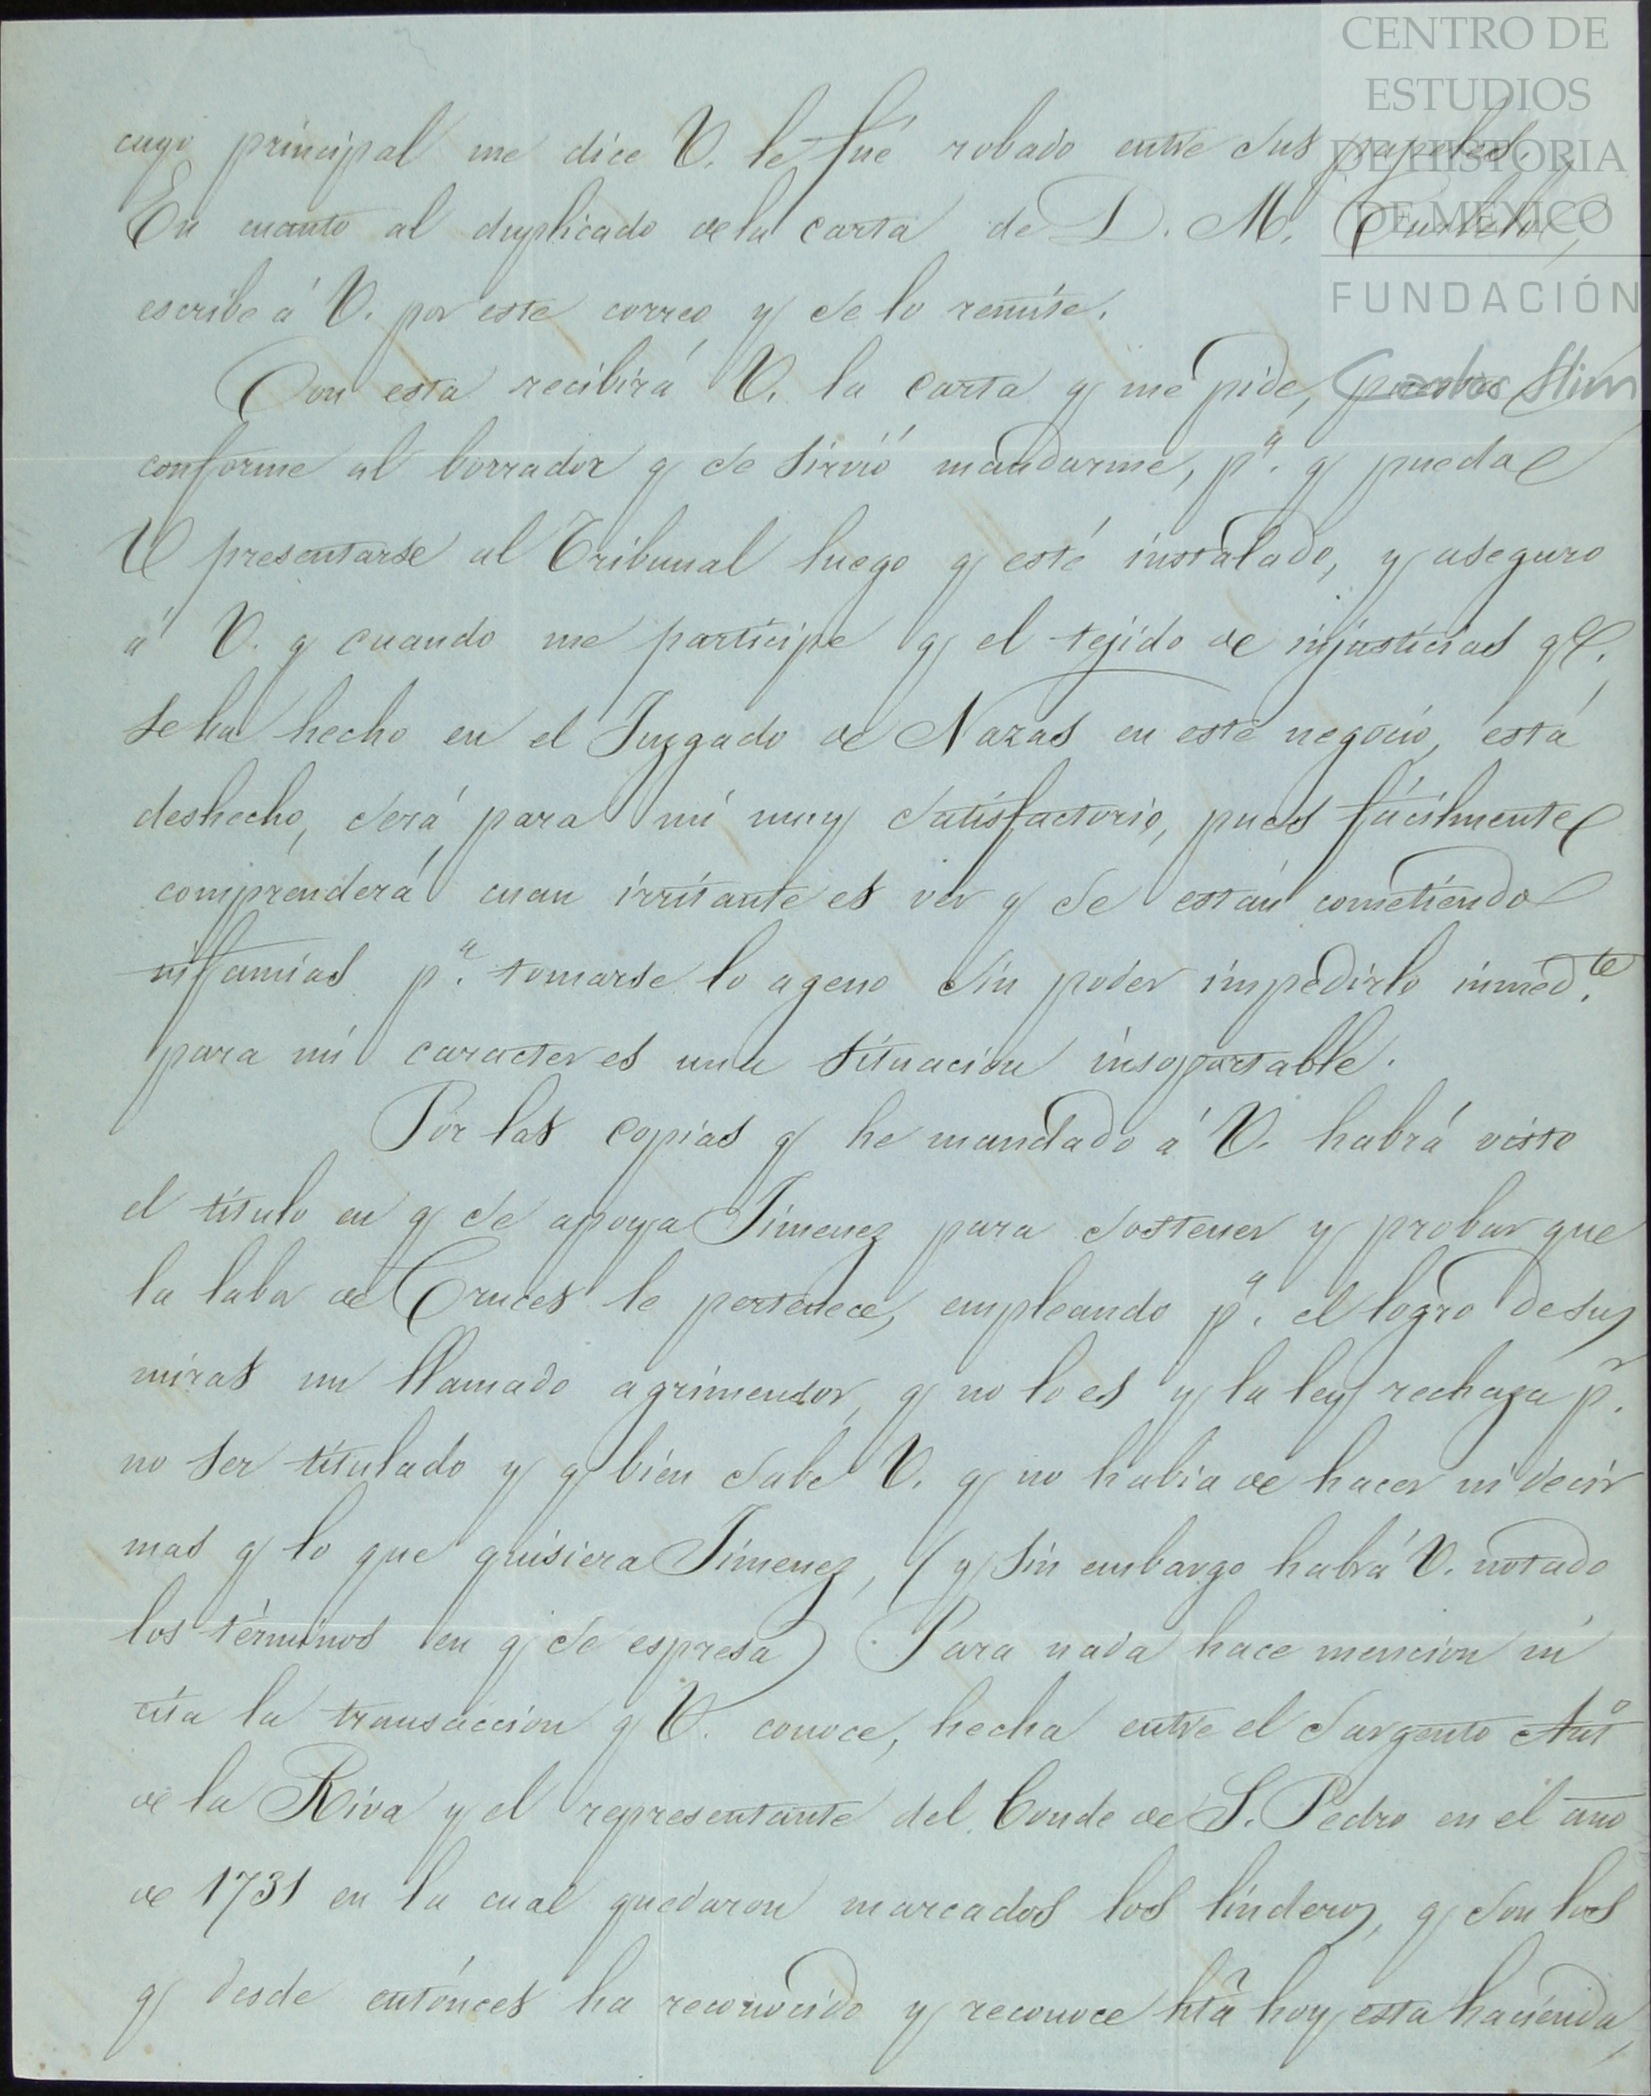 CENTRO DE
ESTUDIOS
DE HISTORIA
DE MEXICO
FUNDACIÓN
Carlos Slim
cuyo principal me dice V. le fué robado entre sus papeles.
En cuanto al duplicado de la carta de D. M.
escribe á V. por este correo y se lo remite.
Con esta recibirá V. la carta q me pide,
conforme al borrador q se sirvió mandarme, pª. q pueda
V presentarse al Tribunal luego q esté instalado, y aseguro
á V. q cuando me participe q el tejido de injusticias q
se ha hecho en el Juzgado de Nazas en este negocio, está
deshecho, será para mi muy satisfactorio, pues fácilmente
comprenderá cuan irritante es ver q se están cometiendo
infamias pª. tomarse lo ageno sin poder impedirlo inmed.te
para mi caracter es una situacion insoportable.
Por las copias q he mandado á V. habrá visto
el título en q se apoya Jimenez para sostener y probar que
la labor de Cruces le pertenece, empleando pª. el logro de sus
miras un llamado agrimensor, q no lo es y la ley rechaza pr.
no ser titulado y q bien sabe V. q no habia de hacer ni decir
mas q lo que quisiera Jimenez, (y sin embargo habrá V. notado
los términos en q se espresa) Para nada hace mencion ni
cita la transaccion q V. conoce, hecha entre el Sargento Antº
de la Riva y el representante del Conde de S. Pedro en el año
de 1731 en la cual quedaron marcados los linderos, q son los
q desde entónces ha reconocido y reconoce hta hoy esta hacienda,